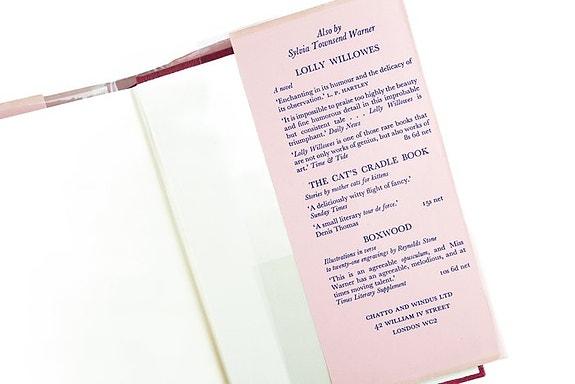 Also by
Sylvia Townsend Warner
LOLLY WILLOWES
A novel
'Enchanting in its humour and the delicacy of
its observation.' L. P. HARTLEY
'It is impossible to praise too highly the beauty
and fine humorous detail in this improbable
but consistent tale . . . Lolly Willowes is
triumphant.' Daily News
'Lolly Willowes is one of those rare books that
are not only works of genius, but also works of
art.' Time & Tide 8s 6d net
THE CAT'S CRADLE BOOK
Stories by mother cats for kittens
'A deliciously witty flight of fancy.'
Sunday Times
'A small literary tour de force.'
Denis Thomas 15s net
BOXWOOD
Illustrations in verse
to twenty-one engravings by Reynolds Stone
'This is an agreeable opusculum, and Miss
Warner has an agreeable, melodious, and at
times moving talent.'
Times Literary Supplement 10s 6d net
CHATTO AND WINDUS LTD
42 WILLIAM IV STREET
LONDON WC2